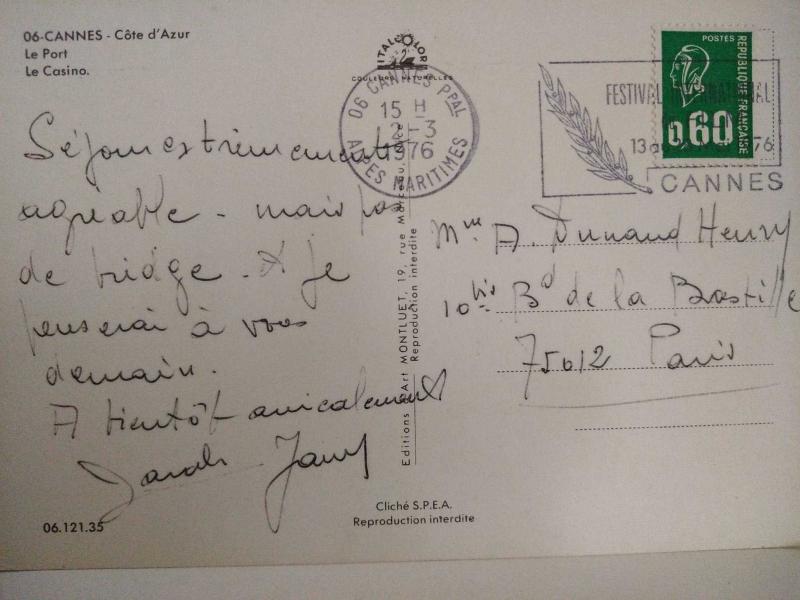 06-CANNES - Côte d'Azur
Le Port
Le Casino.
ITALCOLOR
COULEURS NATURELLES
06 CANNES PPAL
15 H
12-3
1976
ALPES MARITIMES
FESTIVAL INTERNATIONAL
13 76
CANNES
POSTES
REPUBLIQUE FRANÇAISE
0,60
Séjour extrêmement
agréable - mais pas
de bridge. Je
penserai à vous
demain.
A bientôt amicalement
Mme A Dunand Henry
10 bis Bd de la Bastille
75012 Paris
Editions d'Art MONTLUET, 19, rue Marceau,
Reproduction interdite
Cliché S.P.E.A.
Reproduction interdite
06.121.35